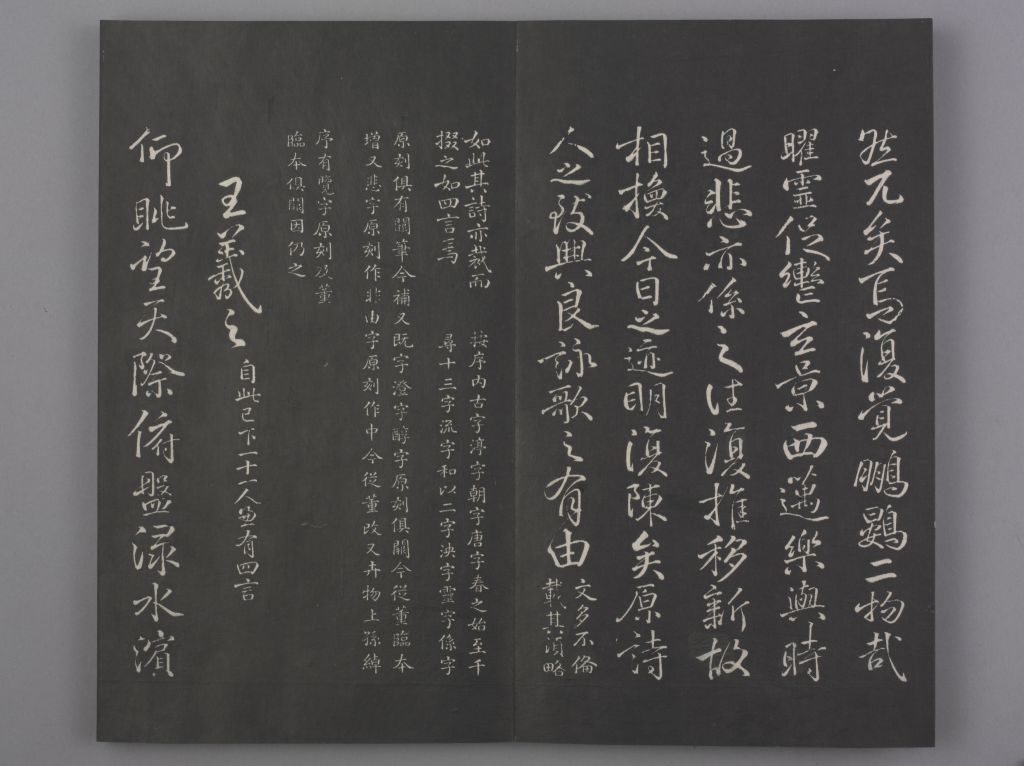 然兀矣焉復覺鵬鷃二物哉
曜靈促轡玄景西邁樂與時
過悲亦係之往復推移新故
相換今日之迹明復陳矣原詩
人之致興良詠歌之有由
文多不俻
載其湏略
如此其詩亦裁而
掇之如四言焉
按序内古字淳字朝字唐字春之始至千
尋十三字流字和以二字泱字靈字係字
原刻俱有闕筆今補又既字澄字醇字原刻俱闕今從董臨本
增又悲字原刻作非由字原刻作中今從董改又卉物上孫綽
序有覽字原刻及董
臨本俱闕因仍之
王羲之 自此已下一十一人各有四言
仰眺望天際俯盤淥水濱